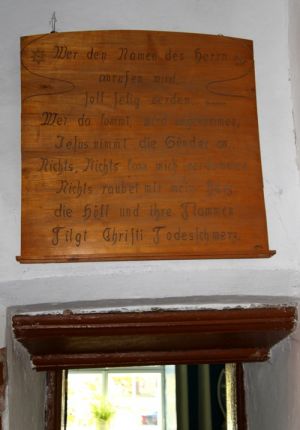 Wer den Namen des Herrn
anrufen wird,
soll selig werden.
Wer da kommt, wird angenommen,
Jesus nimmt die Sünder an.
Nichts, Nichts kann mich verdammen
Nichts raubet mir mein Herz
die Höll und ihre Flammen
Tilgt Christi Todesschmerz.